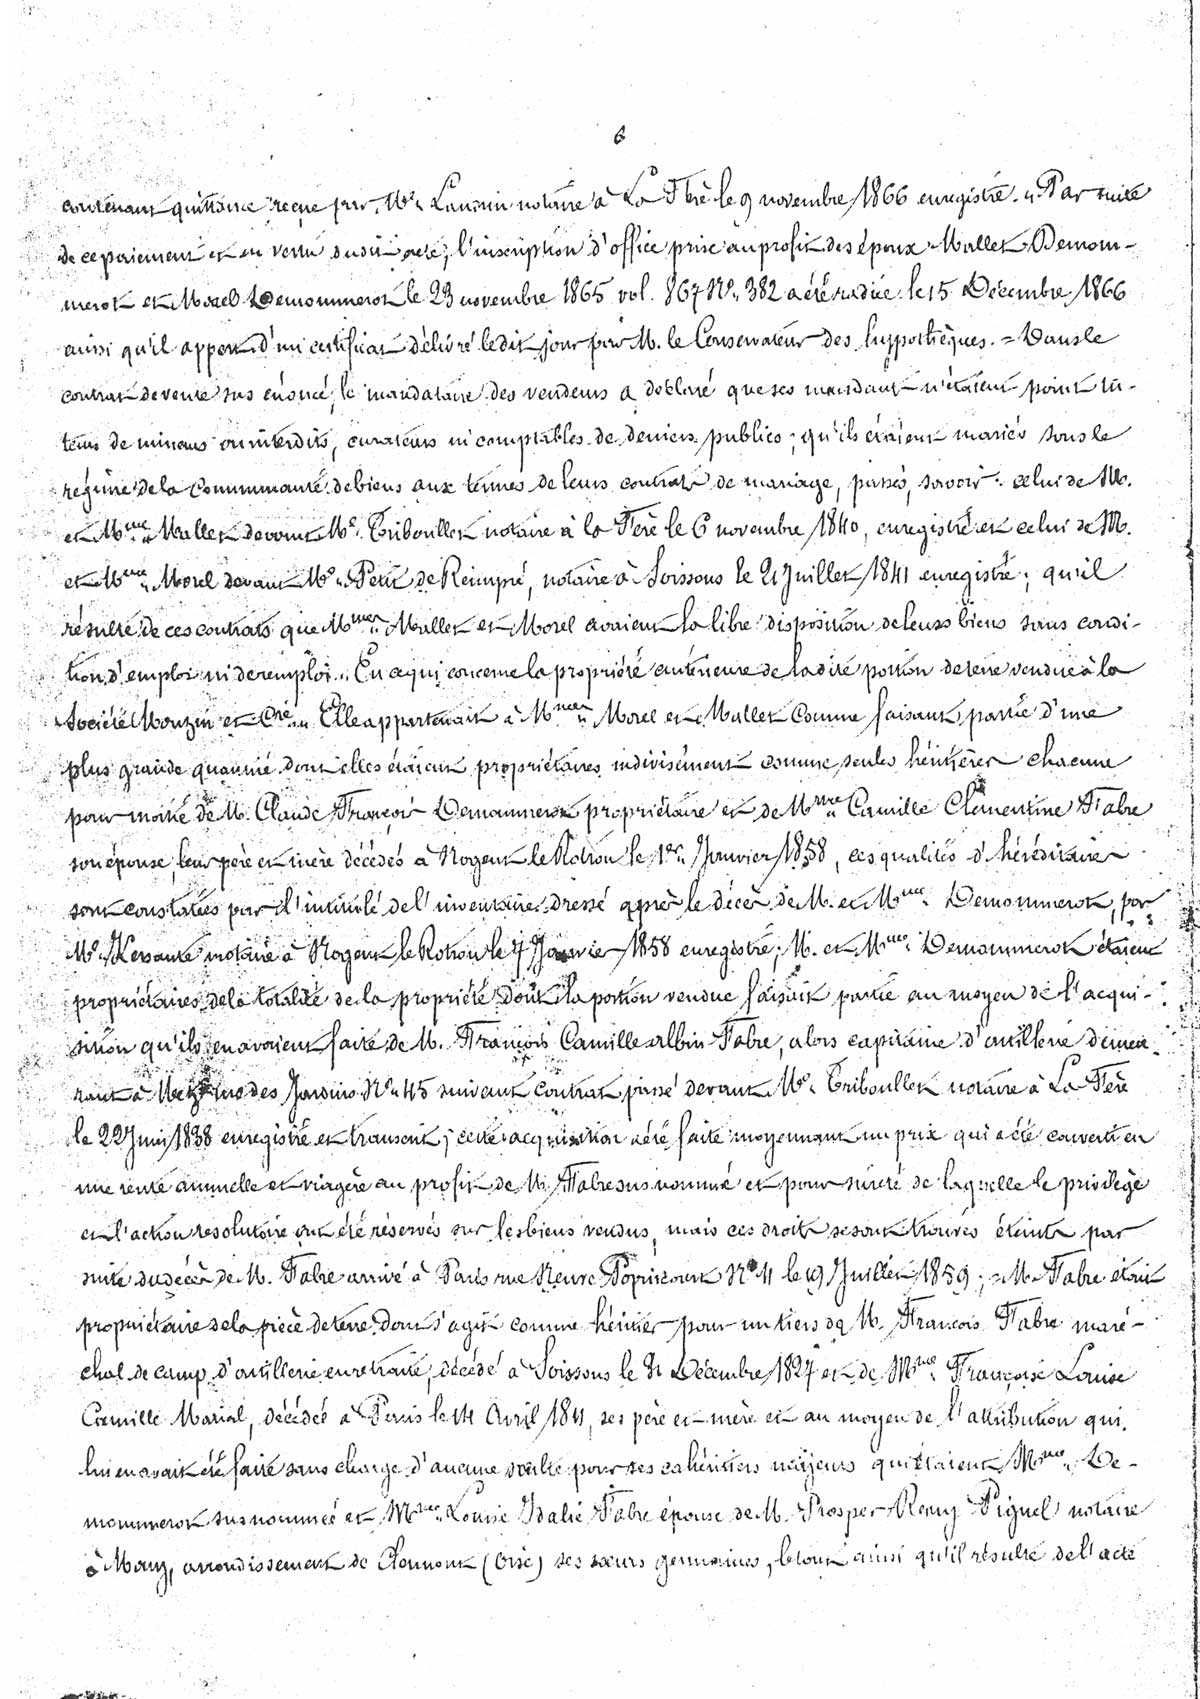 6
contenant quittance reçue par Me Lauxin notaire à La Fère le 9 novembre 1866 enregistré. = Par suite
de ce paiement et en vertu dudit acte, l'inscription d'office prise au profit des époux Mallet Demom-
merot et Morel Demommerot le 23 novembre 1865 vol. 867 No. 382 a été radiée le 15 Décembre 1866
ainsi qu'il appert d'un certificat délivré le dit jour par M. le Conservateur des hypothèques. = Dans le
contrat de vente sus énoncé, le mandataire des vendeurs a déclaré que ses mandants n'étaient point tu-
teurs de mineurs ou interdits, curateurs ni comptables de deniers publics; qu'ils étaient mariés sous le
régime de la Communauté de biens aux termes de leurs contrats de mariage, passés, savoir: celui de M.
et Mme Mallet devant Me Triboullet notaire à la Fère le 6 novembre 1840, enregistré et celui de M.
et Mme Morel devant Me Petit de Reimpré, notaire à Soissons le 21 Juillet 1841 enregistré; qu'il
résulte de ces contrats que Mmes Mallet et Morel avaient la libre disposition de leurs biens sans condi-
tion d'emploi ni de remploi. = En ce qui concerne la propriété antérieure de ladite portion de terre vendue à la
Société Mouzin et Cie = Elle appartenait à Mmes Morel et Mallet comme faisant partie d'une
plus grande quantité dont elles étaient propriétaires indivisément comme seules héritières chacune
pour moitié de M. Claude François Demommerot propriétaire et de Mme Camille Clémentine Fabre
son épouse, leur père et mère décédés à Nogent le Rotrou le 1er Janvier 1858, ces qualités d'héréditaires
sont constatées par l'intitulé de l'inventaire dressé après le décès de M. et Mme Demommerot, par
Me Kersanté notaire à Nogent le Rotrou le 7 Janvier 1858 enregistré; M. et Mme Demommerot étaient
propriétaires de la totalité de la propriété dont la portion vendue faisait partie au moyen de l'acqui-
sition qu'ils en avaient faite de M. François Camille Albin Fabre, alors capitaine d'artillerie demeu-
rant à Metz rue des Jardins No 45 suivant contrat passé devant Me Triboullet notaire à La Fère
le 22 Juin 1838 enregistré et transcrit; cette acquisition a été faite moyennant un prix qui a été converti en
une rente annuelle et viagère au profit de M. Fabre sus nommé et pour sûreté de laquelle le privilège
et l'action résolutoire ont été réservés sur les biens vendus, mais ces droits se sont trouvés éteints par
suite du décès de M. Fabre arrivé à Paris rue Neuve Popincourt No 11 le 19 Juillet 1859; = M. Fabre était
propriétaire de la pièce de terre dont s'agit comme héritier pour un tiers de M. François Fabre maré-
chal de camp d'artillerie en retraite, décédé à Soissons le 31 Décembre 1827 et de Mme Françoise Louise
Camille Marial, décédée à Paris le 14 Avril 1811, ses père et mère et au moyen de l'attribution qui
lui en avait été faite sans charge d'aucune soulte pour ses cohéritiers majeurs qui étaient Mme De-
mommerot sus nommée et Mme Louise Idalie Fabre épouse de M. Prosper Remy Piguel notaire
à Mouy, arrondissement de Clermont (Oise) ses sœurs germaines, le tout ainsi qu'il résulte de l'acte